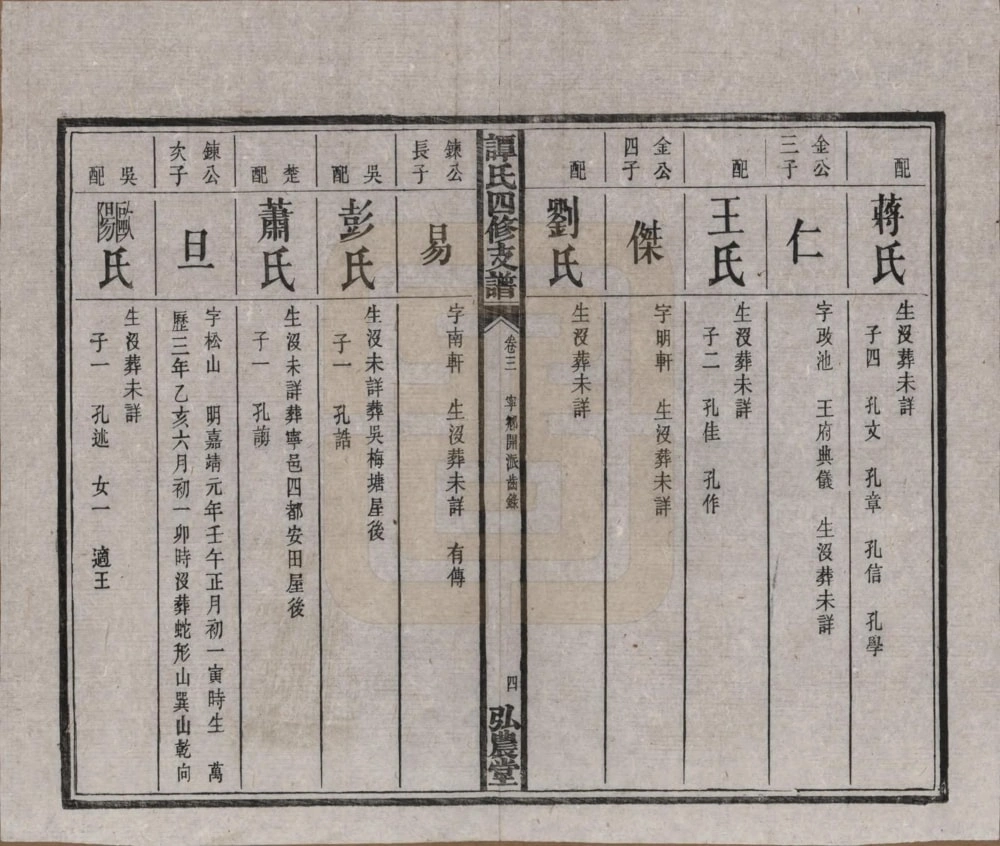 配
蔣氏
生沒葬未詳
子四 孔文 孔章 孔信 孔學
金公
三子
仁
字政池 王府典儀 生沒葬未詳
配
王氏
生沒葬未詳
子二 孔佳 孔作
金公
四子
傑
字明軒 生沒葬未詳
配
劉氏
生沒葬未詳
譚氏四修支譜
卷三
寧鄉開派齒錄
四
弘農堂
鍊公
長子
易
字南軒 生沒葬未詳 有傳
吳
配
彭氏
生沒未詳葬吳梅塘屋後
子一 孔誥
楚
配
蕭氏
生沒未詳葬寧邑四都安田屋後
子一 孔
鍊公
次子
旦
字松山 明嘉靖元年壬午正月初一寅時生 萬
歷三年乙亥六月初一卯時沒葬蛇形山巽山乾向
吳
配
歐陽氏
生沒葬未詳
子一 孔述 女一 適王